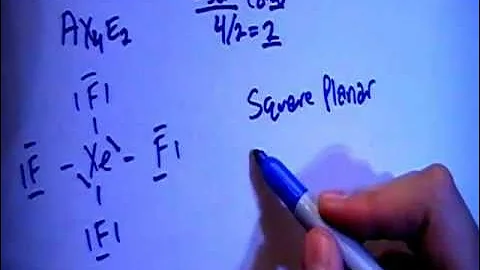 AX4E2
4/2=2
Square Planar
F
F - Xe - F
F